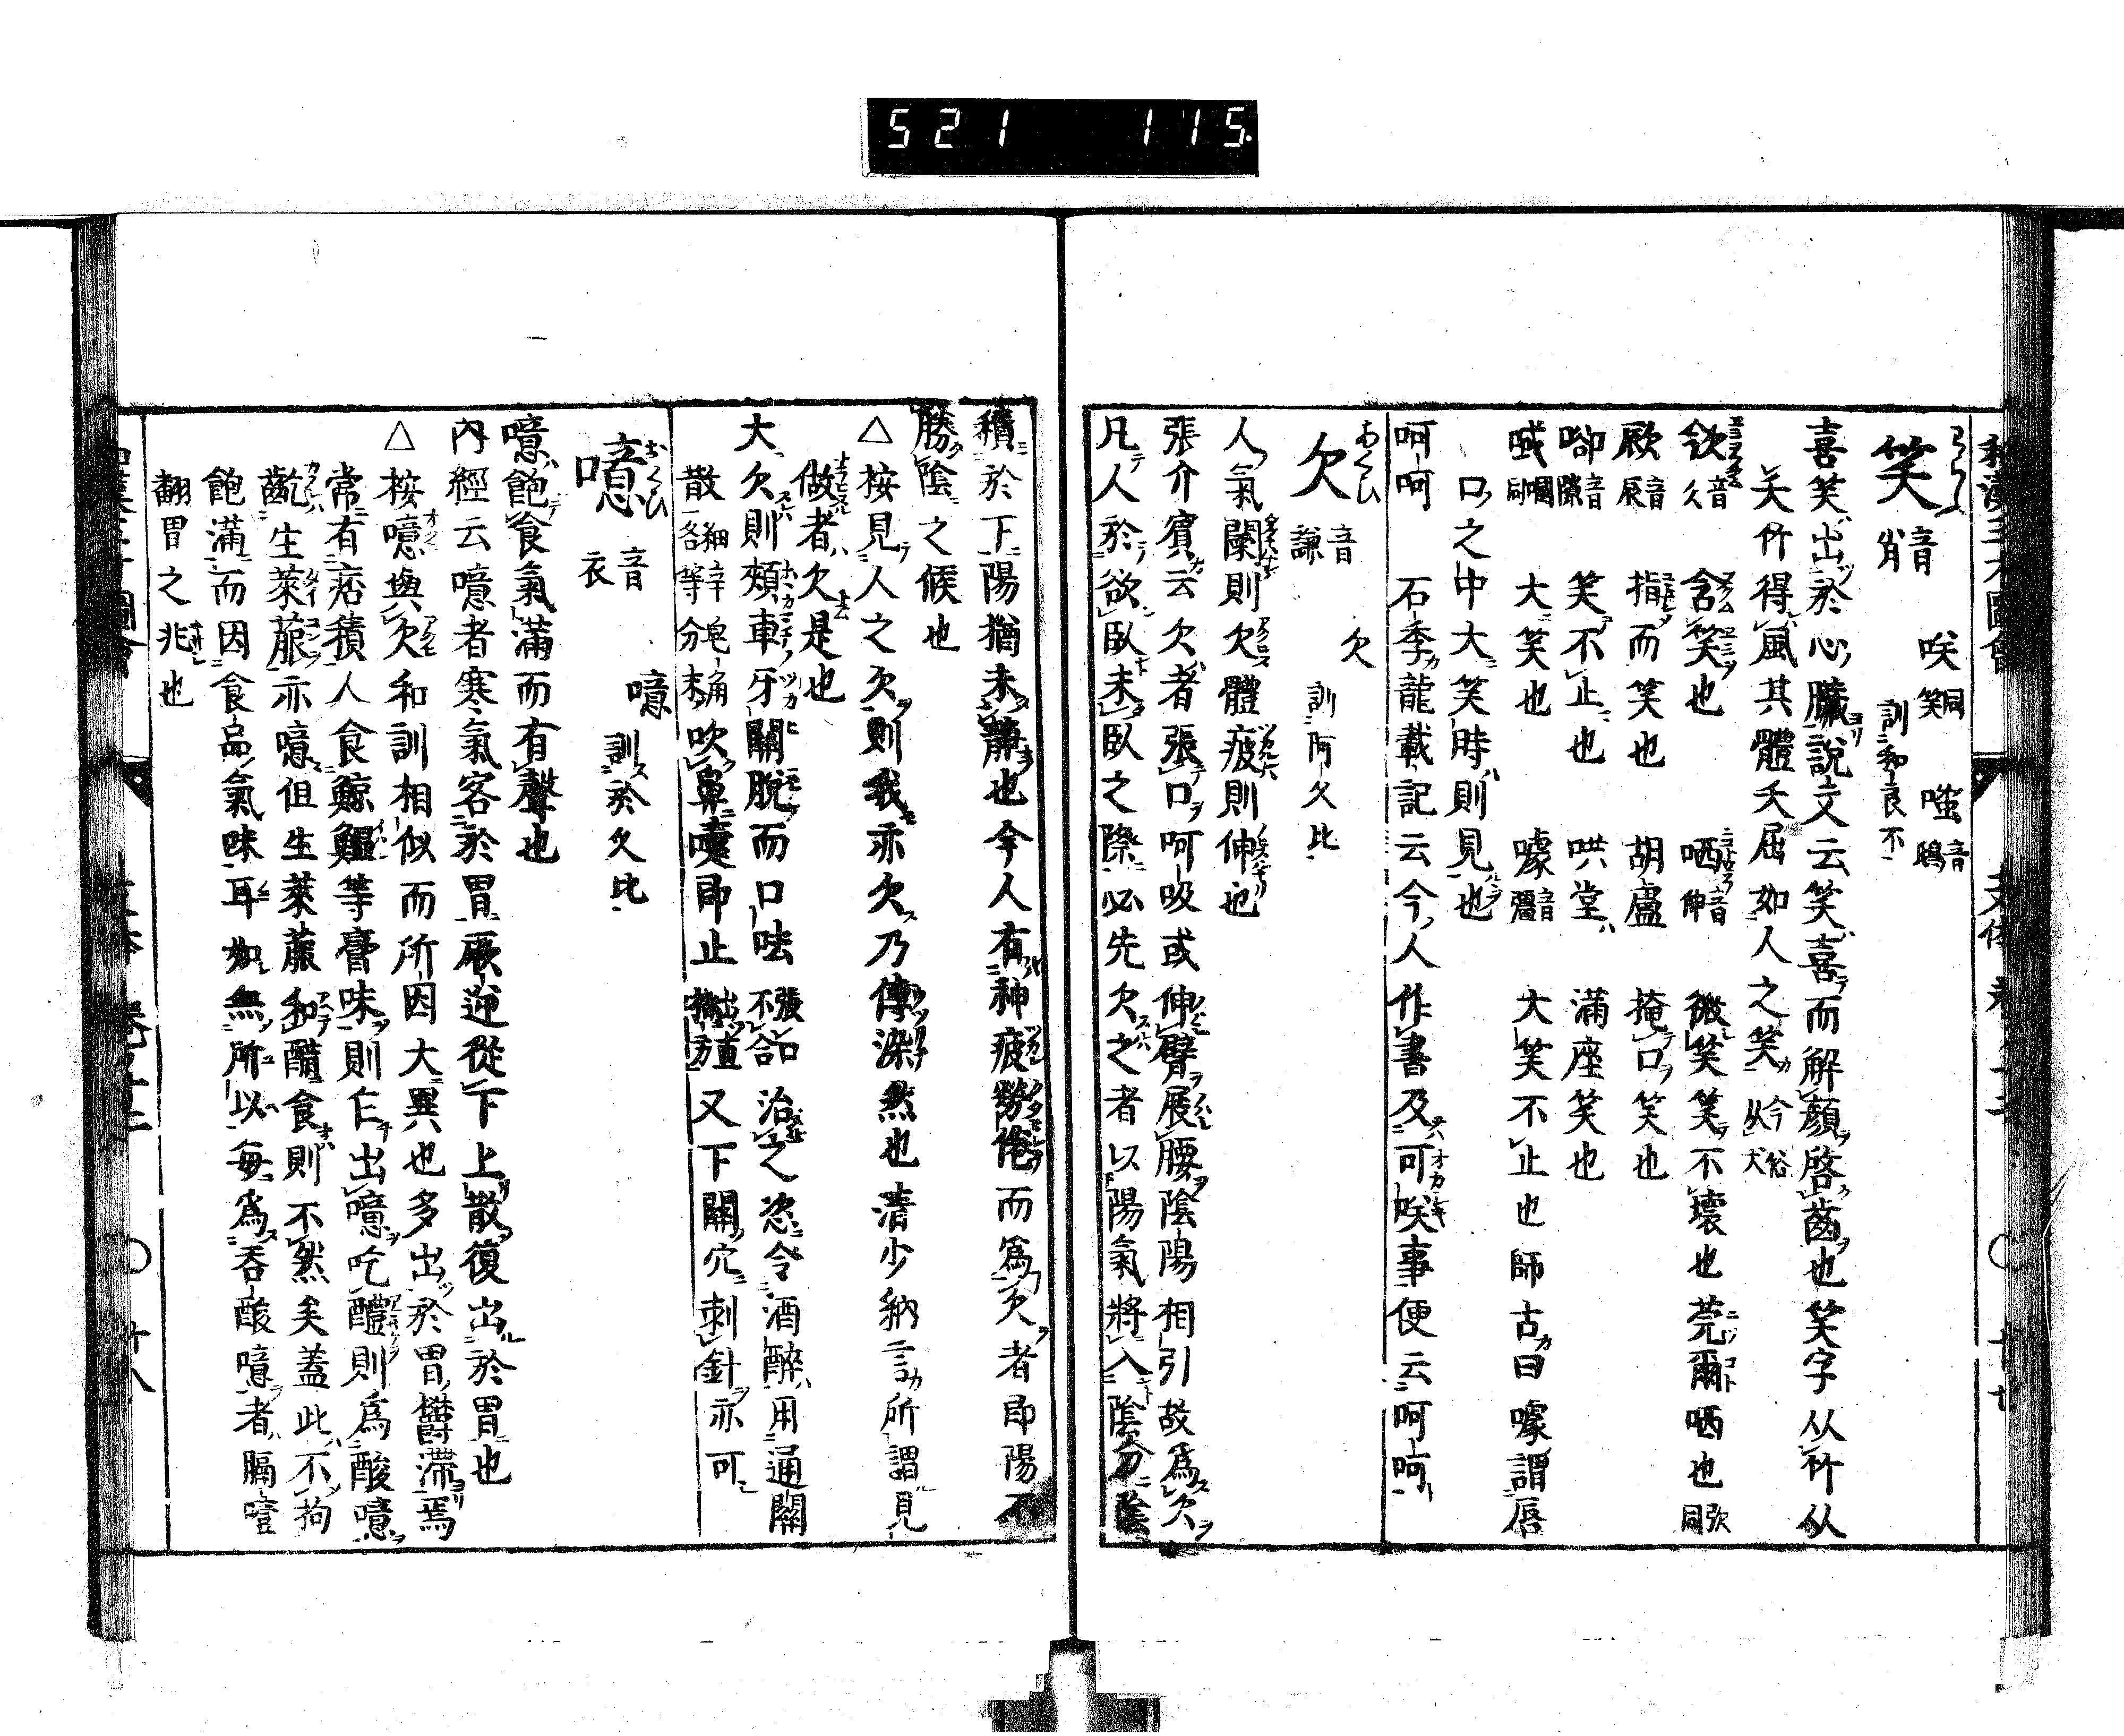 521 115.
和漢三才圖會
笑 音肖
咲 笑同 嗤 音鴟
訓和良不
喜笑出於心臟說文云笑喜而解顏啓齒也笑字从竹从
夭竹得風其體夭屈如人之笑 今俗从犬
欨 音久 含笑也 哂 音伸 微笑笑不壞也莞爾哂也 㰞同
㕂 音辰 指而笑也 胡盧 掩口笑也
㗛 音隙 笑不止也 哄堂 滿座笑也
大笑也 噱 音 大笑不止也師古曰噱謂唇
口之中大笑時則見也
呵呵 石季龍載記云今人作書及可咲事便云呵呵
あくび
欠 音謙
欠 訓阿久比
人氣闕則欠體疲則伸也
張介賓云欠者張口呵吸或伸臂展腰陰陽相引故爲欠
凡人於欲臥未臥之際必先欠之者以陽氣將入陰分陰
積於下陽猶未靜也今人有神疲勞倦而爲欠者即陽不
勝陰之候也
△按見人之欠則我亦欠乃傳染然也清少納言所謂見
做者欠是也
大欠則頰車牙關脫而口呿 張口不合 治之恣令酒醉用通關
散 細辛皂角各等分末 吹鼻嚏即止 又下關穴刺針亦可
おくび
噫 音衣
噫 訓於久比
噫飽食氣滿而有聲也
內經云噫者寒氣客於胃厥逆從下上散復出於胃也
△按噫與欠和訓相似而所因大異也多出於胃鬱滯焉
常有痞積人食鯨鰮等膏味則乍出噫吃醴則爲酸噫
齕生萊菔亦噫但生萊菔和醋食則不然矣蓋此不拘
飽滿而因食品氣味耳如無所以每爲吞酸噫者膈噎
翻胃之兆也